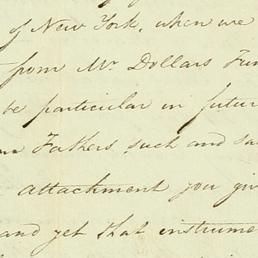 of New York, when we
from Mr Dollars Fun
be particular in futur
Fathers such and sa
attachment you giv
and yet that instrume